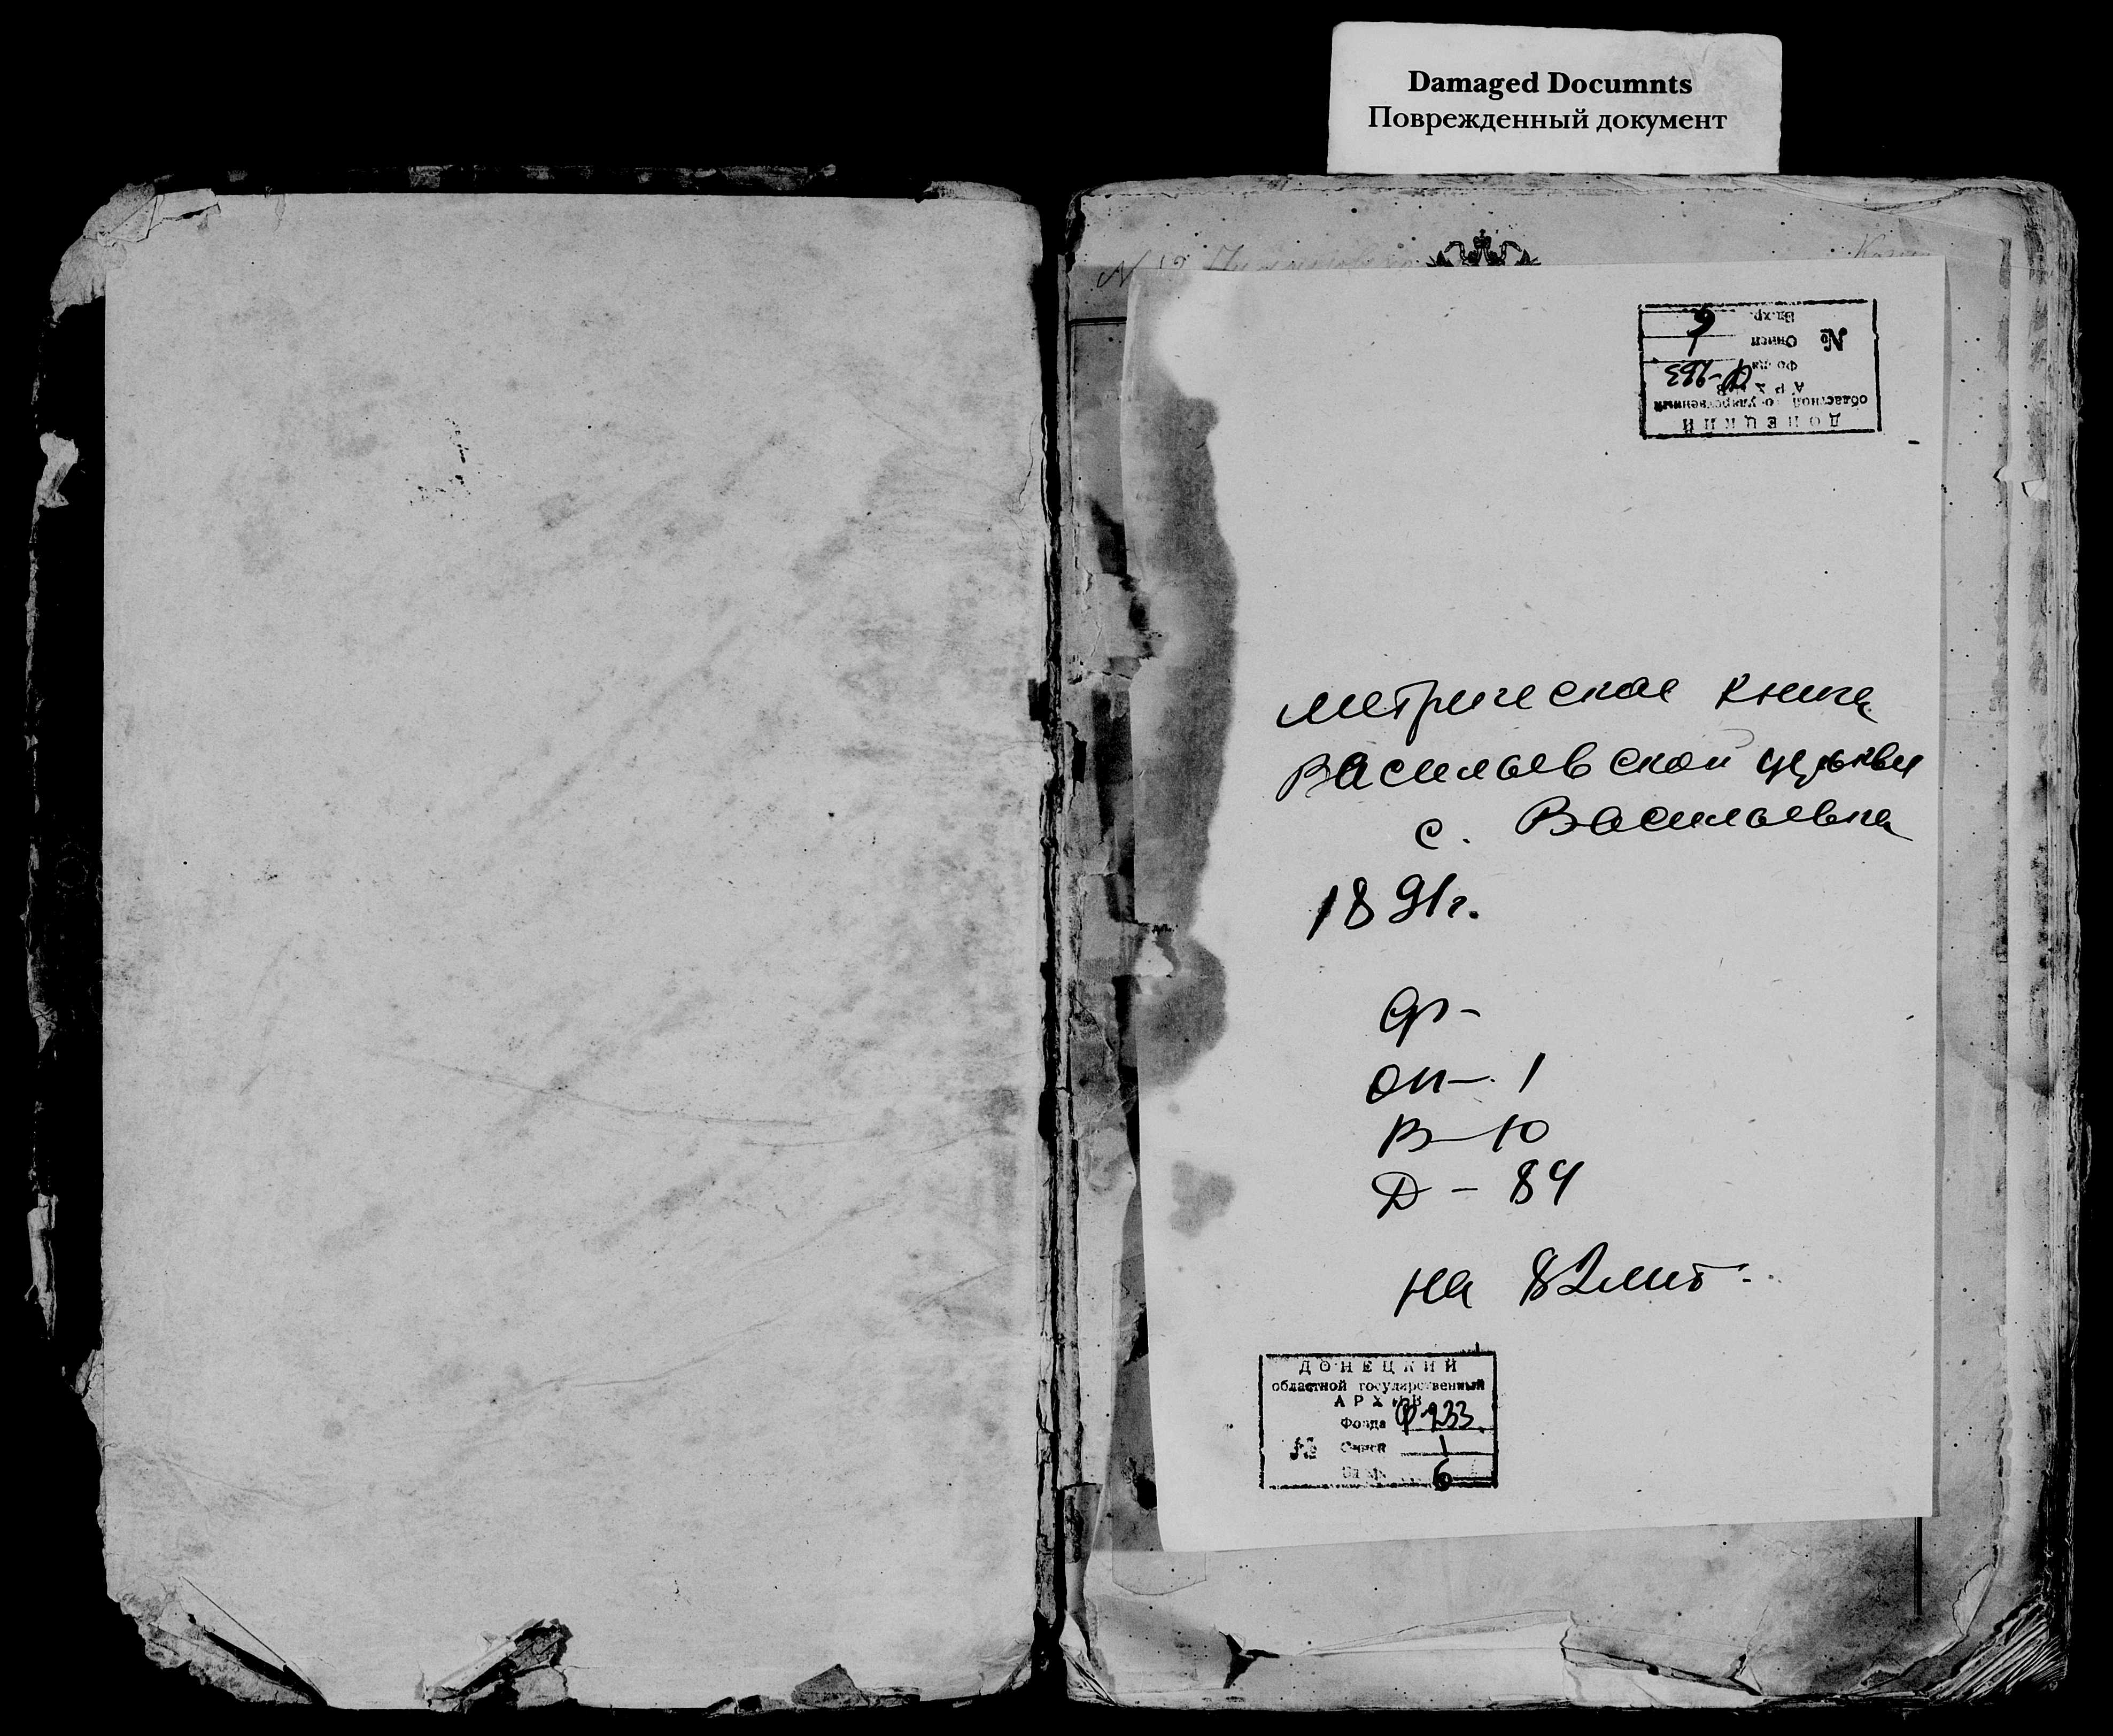 Damaged Documnts
Поврежденный документ
№
ДОНЕЦКИЙ
областной государственный
АРХИВ
Фонда
№ Описи 1
Ед.хр. 6
метрическая книга
Васильевской церкви
с. Васильевка
1891г.
ф-
оп-1
В-10
Д-84
на 82лит
ДОНЕЦКИЙ
областной государственный
АРХИВ
Фонда
№ Описи 1
6